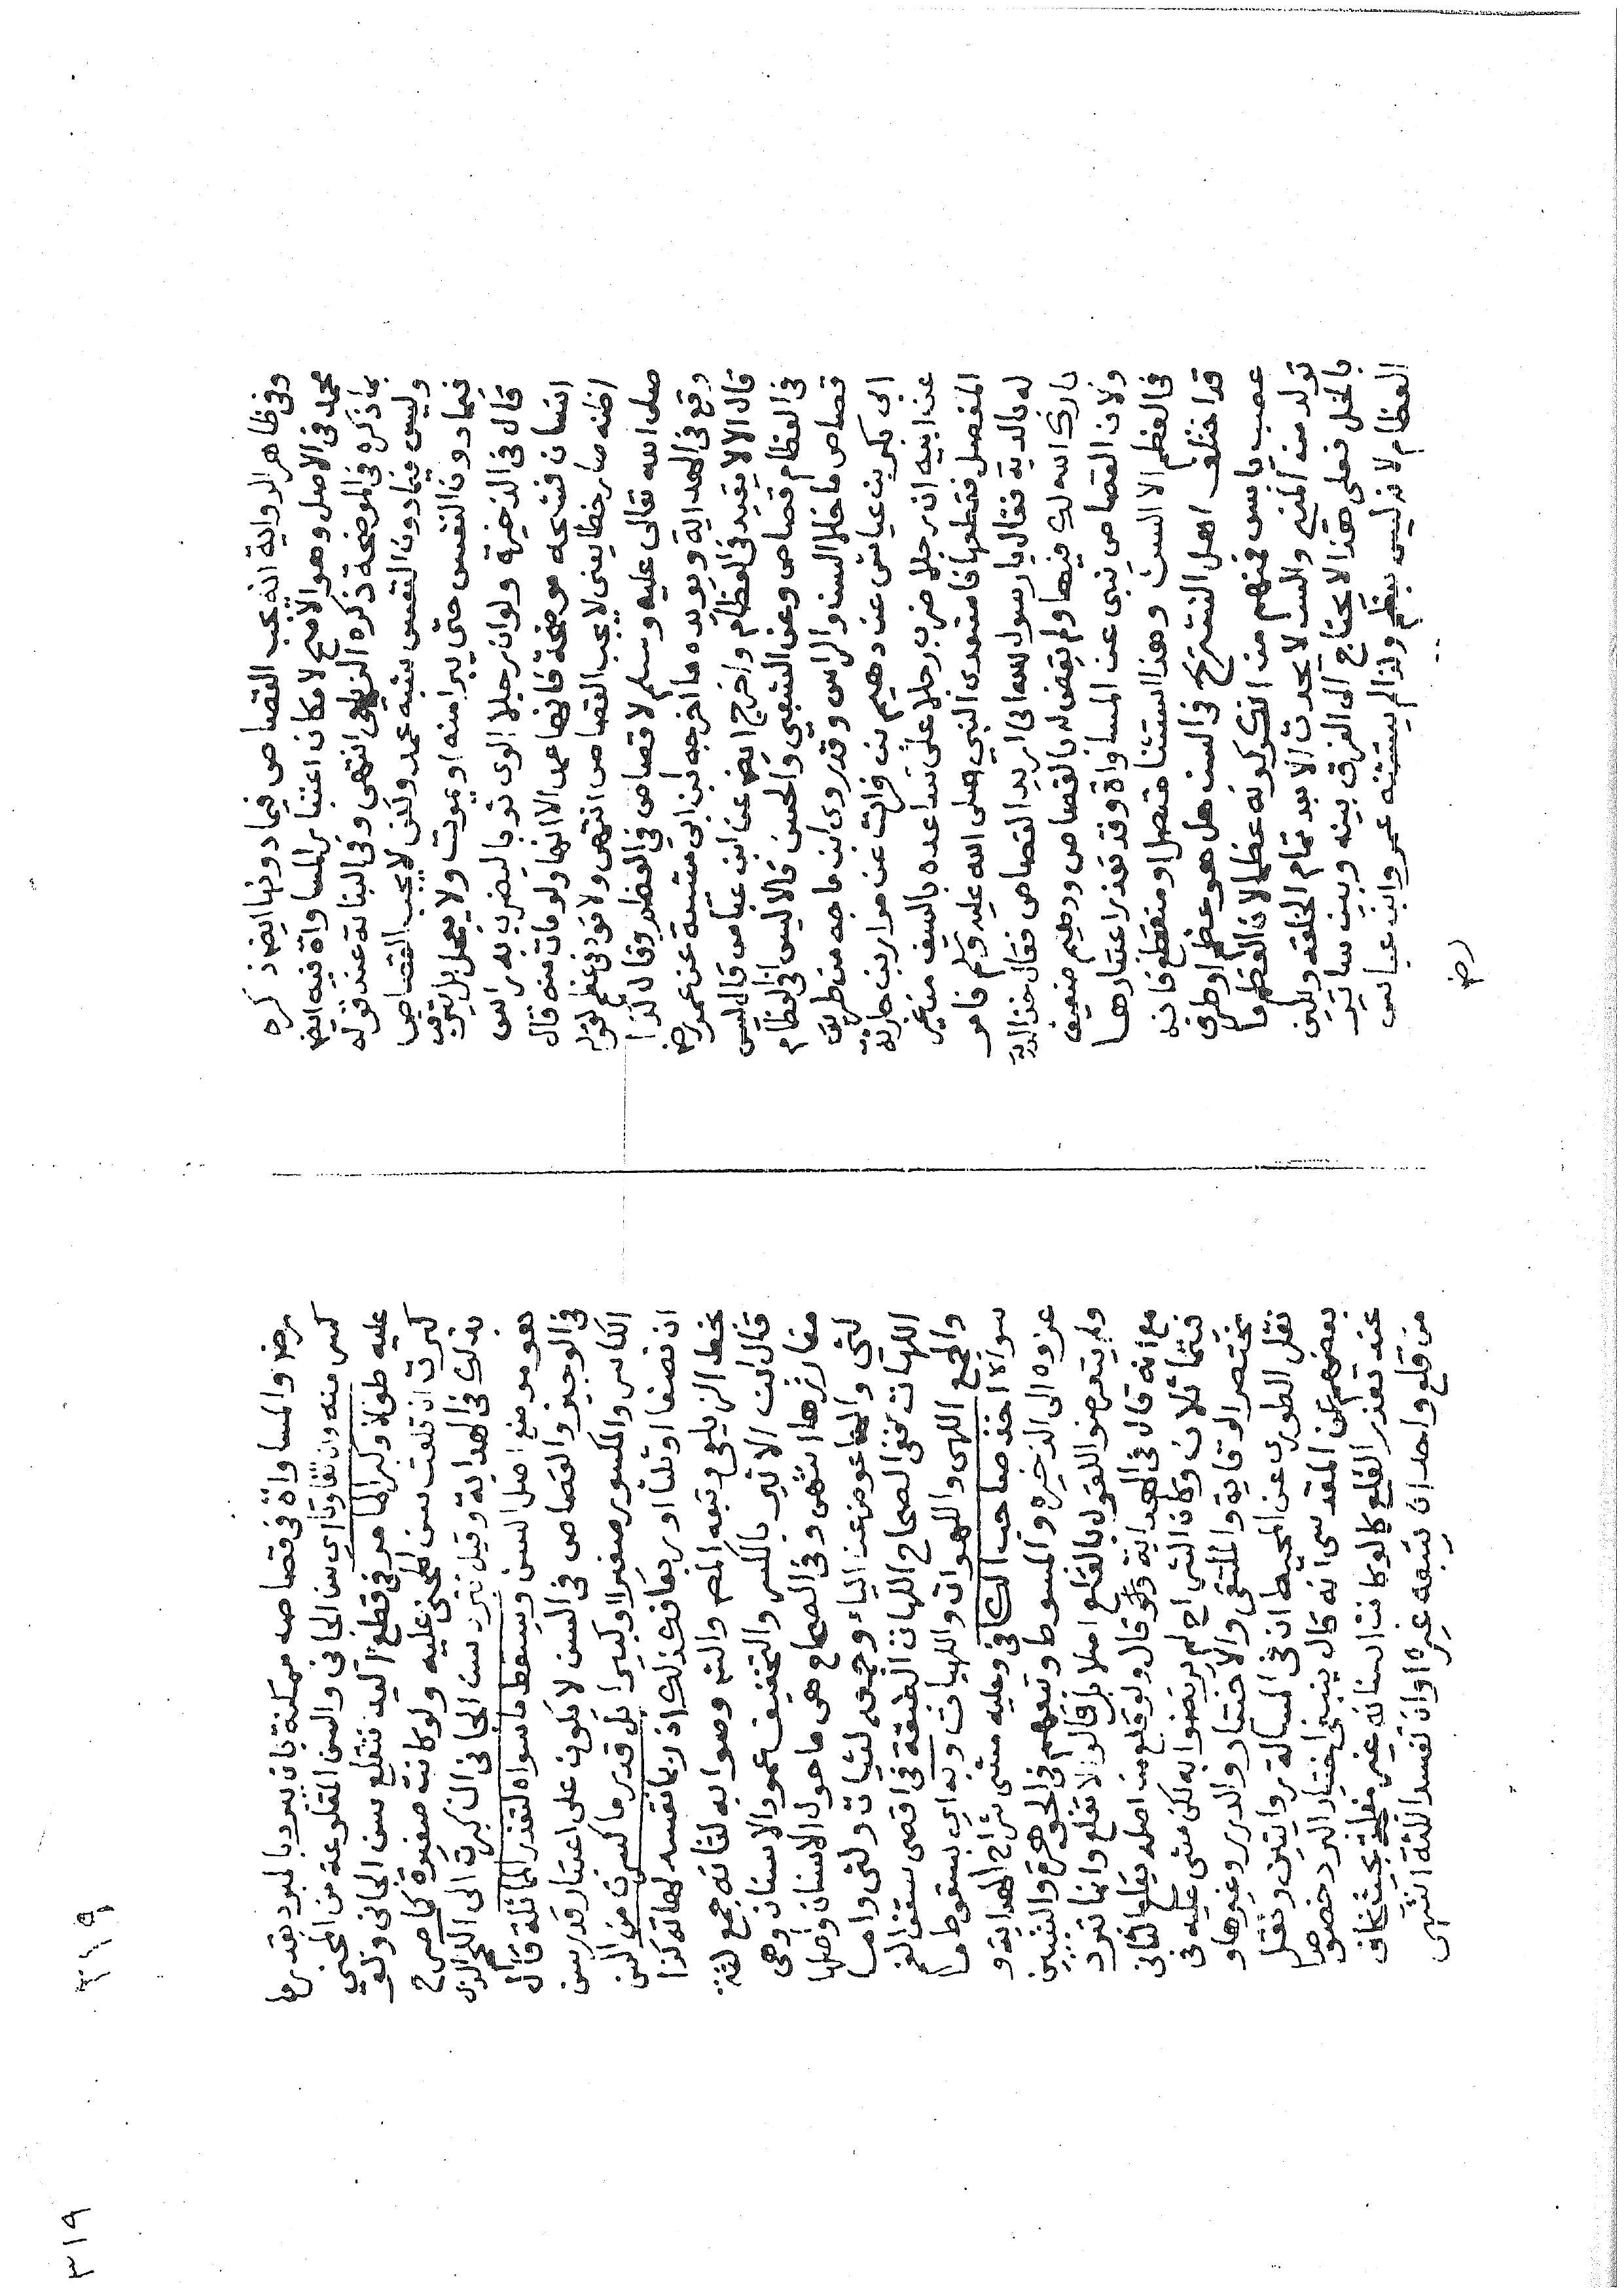 وفى ظاهر الرواية انه يجب القصاص فيما دونها ايضا ذكره
محمد فى الاصل وهو الاصح لامكان اعتبار المساواة فيه ايضا
بما ذكره فى الموضحة ذكره الزيلعى انتهى وفى البناية عند قوله
وليس فيما دون النفس شبه عمد ولكن لا يجب القصاص
فيما دون النفس حتى يبرا منه او يموت ولا يعجل بل يترقب
قال فى الذخيرة ولو ان رجلا الوى ثوبا ليضرب به راس
انسان فشجه موضحة فانها عمد الا انها ولو مات منه قال
اظنه صار خطا يعنى لا يجب القصاص انتهى ولا قود فى عظم لقوله
صلى الله تعالى عليه وسلم لا قصاص فى العظم وقال كذا
وقع فى الهداية ويويده ما اخرجه ابن ابى شيبة عن عمر رض
قال الا لا يقيد فى العظام واخرج ايض عن ابن عباس قال ليس
فى العظام قصاص وعن الشعبى والحسن قالا ليس فى العظام
قصاص ما خلا السن والراس وقد روى ابن ماجه من طريق
ابى بكر بن عياش عن دهيم بن قران عن بن جارية
عن ابيه ان رجلا ضرب رجلا على ساعده بالسيف من غير
المفصل فقطعها فاستعدى النبي صلى الله عليه وسلم فامر
له بالدية فقال يا رسول الله انى اريد القصاص فقال خذ الدية
بارك الله لك فيها ولم يقض له بالقصاص ودهيم ضعيف
ولان القصاص ينبى عن المساواة وقد تعذر اعتبارها
فى العظم الا السن وهذا استثنا متصل او منقطع فانه
قد اختلف اهل التشريح فى السن هل هو عظم او طرف
عصب يابس فمنهم من انكر كونه عظما لان العظم ما
تولد من المني والسن لا يحدث الا بعد تمام الخلقة ويلين
بالخل فعلى هذا لا يحتاج الى الفرق بينه وبين سائر
العظام لانه ليس بعظم ولذا لم يستثنه عمر وابن عباس
رض
٣١٩
رض والمساواة فى قصاصه ممكنة بان يبرد بالمبرد بقدر ما
كسر منه وان تفاوتا اى سن الجانى والسن المقلوعة من المجني
عليه طولا وكبرا لما مر فى قطع اليد فتقلع سن الجانى ولو
كبرت ان قلعت سن المجني عليه ولو كانت صغيرة كما صرح
بذلك فى الهداية وقيل تبرد سن الجانى ان كبرت الى اللحم الذى
هو موضع اصل السن ويسقط ما سواه لتعذر المماثلة قال
فى الوجيز والقصاص فى السن لا يكون على اعتبار قدر سن
الكاسر والمكسور صغيرا او كبيرا بل قدر ما كسرت من السن
ان نصفا او ثلثا او ربعا فكذلك اذ ربما تفسد لهاته كذا
بخط الزيلعى وتبعه المص والتم وصوابه لثاته جمع لثة
قال ابن الاثير بالكسر والتخفيف عمود الاسنان وهى
مغارزها انتهى وفى الصحاح هى ما حول الاسنان واصلها
لثى والهاء عوض عن الياء وجمعه لثات ولثى واما
اللهات ففى الصحاح اللهات الطبقة فى اقصى سقف الفم
والجمع اللهى واللهوات واللهيات وبه اى بسقوط ما
سواه اخذ صاحب الكافى وعليه مشى شراح الهداية و
عزوه الى الذخيرة والمبسوط وتبعهم فى الجوهرة والتبيين
ولم يتعرضوا للقول بالقلع اصلا بل قالوا لا تقلع وانما تبرد
مع انه قال فى الهداية ولو قلع من اصله يقلع الثانى
فيتماثلان وكان الشراح لم يرضوا به لكن مشى عليه فى
مختصر الوقاية والملتقى والاختيار والدرر وغيرها و
نقل الطورى عن المحيط ان فى المسالة روايتين ونقل
بعضهم عن المقدسى انه قال ينبغى اختيار البرد خصوصا
عند تعذر القلع كما لو كانت اسنانه غير مفلجة بحيث يخاف
من قلع واحد ان يتبعه غيره او ان تفسد اللثة انتهى
٣١٩